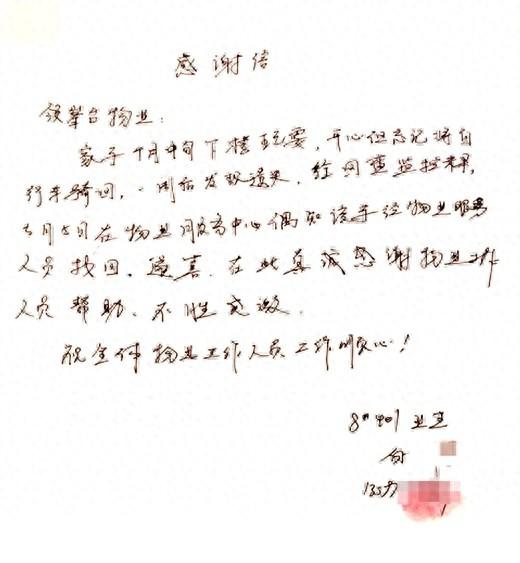 感谢信
领攀台物业:
家子个月中旬下楼玩耍,开心但忘记将自
行车骑回,一周后发现遗失,经回查监控未果,
5月5日在物业服务中心偶知该车经物业服务
人员找回,惊喜.在此真诚感谢物业工作
人员帮助、不胜感激.
祝全体物业工作人员工作顺心!
8# 业主